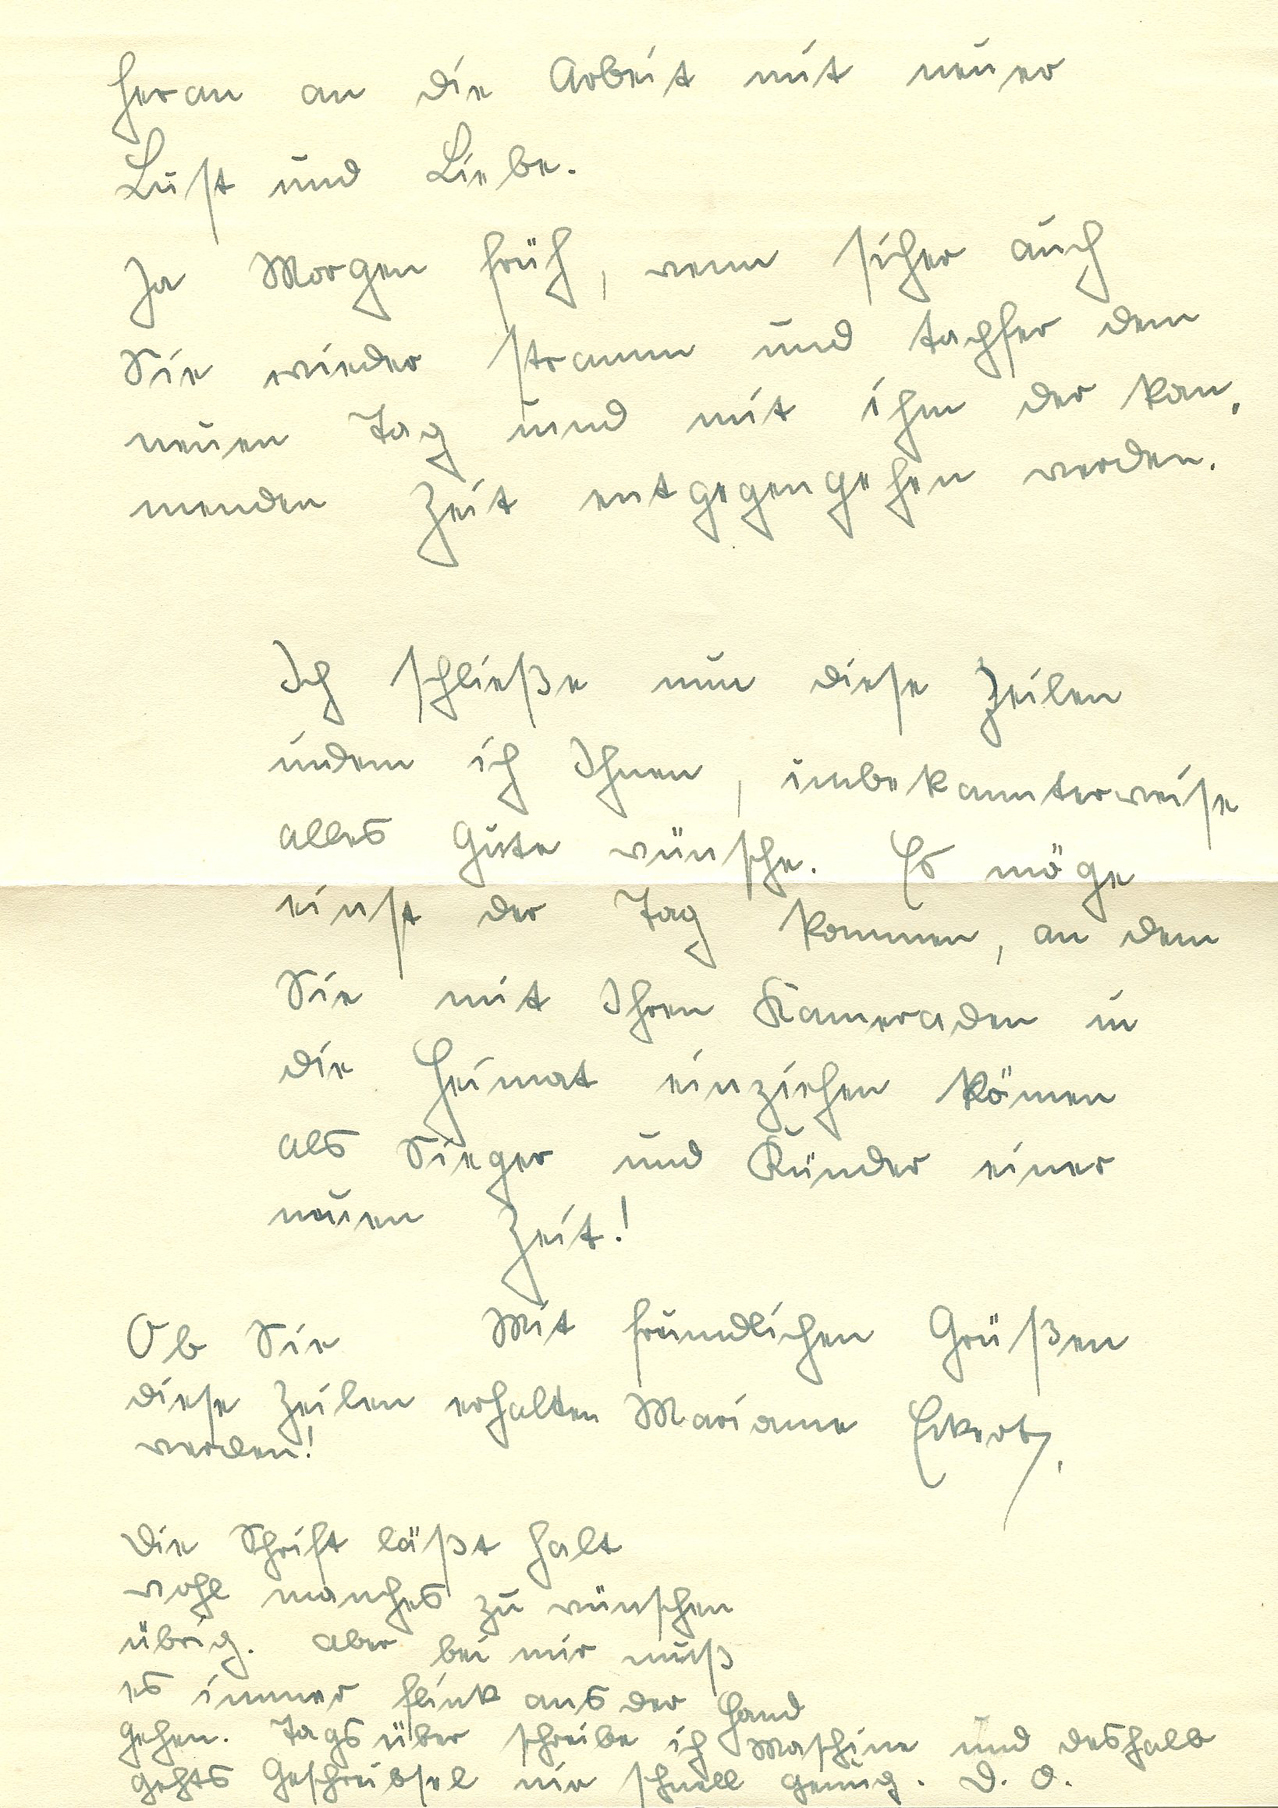 heran an die Arbeit mit neuer
Lust und Liebe.
Ja Morgen früh, wenn sicher auch
Sie wieder stramm und tapfer dem
neuen Tag und mit ihm der kom,
menden Zeit entgegengehen werden.
Ich schließe nun diese Zeilen
indem ich Ihnen, unbekannterweise
alles Gute wünsche. Es möge
einst der Tag kommen, an dem
Sie mit Ihren Kameraden in
die Heimat einziehen können
als Sieger und Künder einer
neuen Zeit!
Mit freundlichen Grüßen
Marianne Eckert,
Ob Sie
diese Zeilen erhalten
werden!
Die Schrift läßt halt
wohl manches zu wünschen
übrig. Aber bei mir muß
es immer flink aus der Hand
gehen. Tagsüber schreibe ich Maschine und deshalb
gehts Geschreibsel nie schnell genug. D. O.